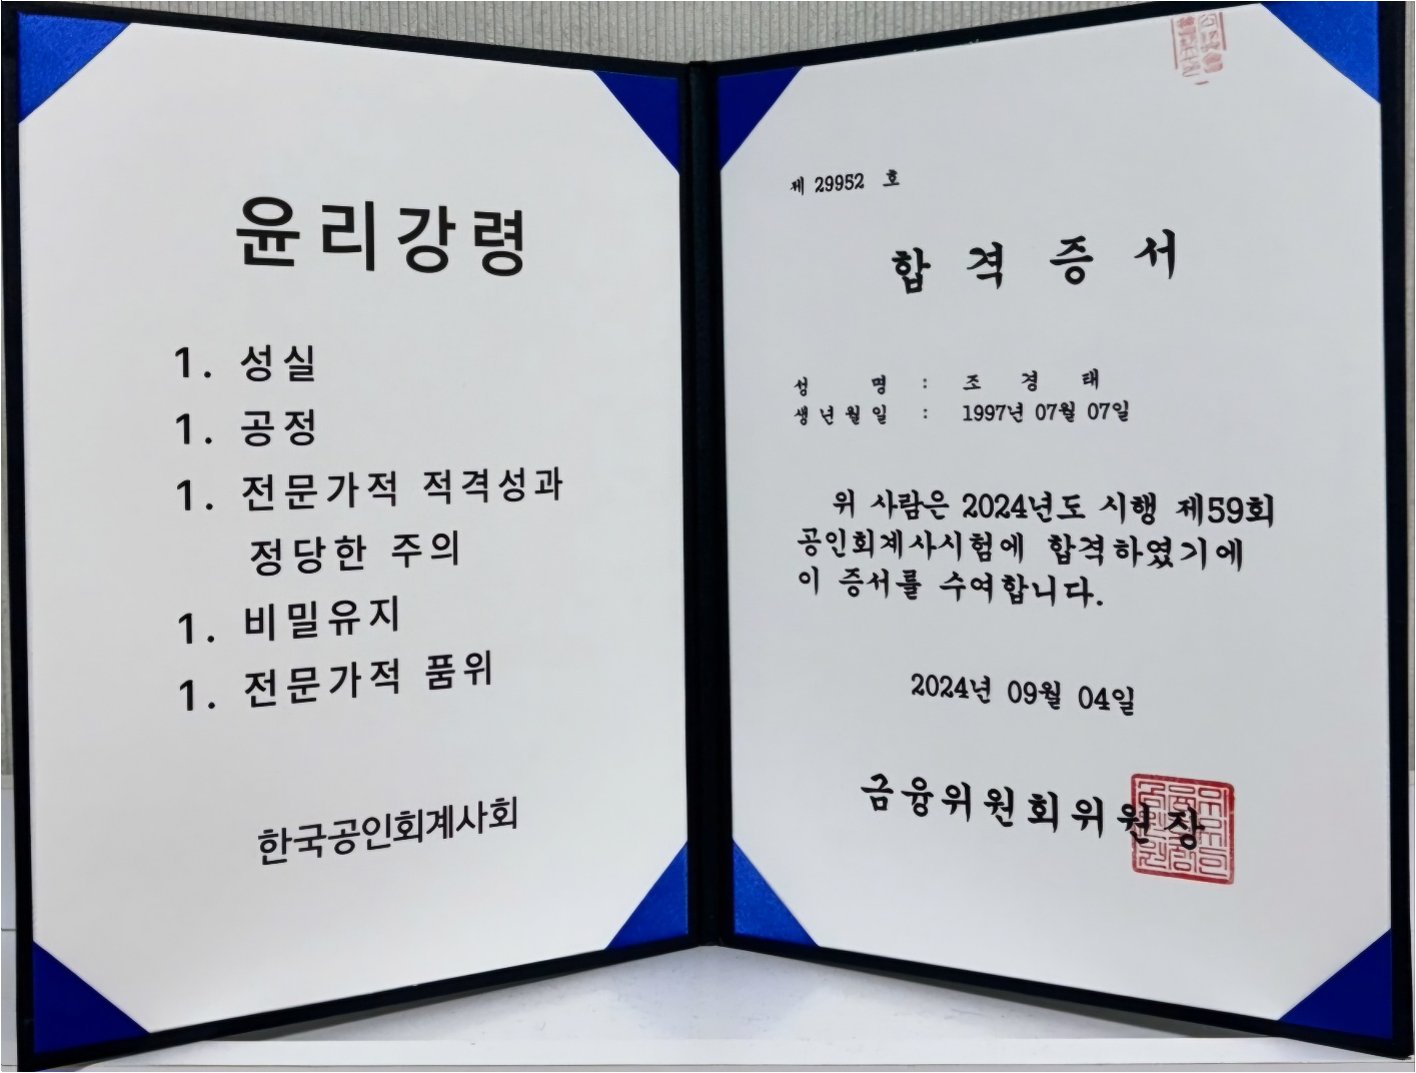 윤리강령
1. 성실
1. 공정
1. 전문가적 적격성과
정당한 주의
1. 비밀유지
1. 전문가적 품위
한국공인회계사회
제 29952 호
합격증서
성 명 : 조 경 태
생년월일 : 1997년 07월 07일
위 사람은 2024년도 시행 제59회
공인회계사시험에 합격하였기에
이 증서를 수여합니다.
2024년 09월 04일
금융위원회위원장